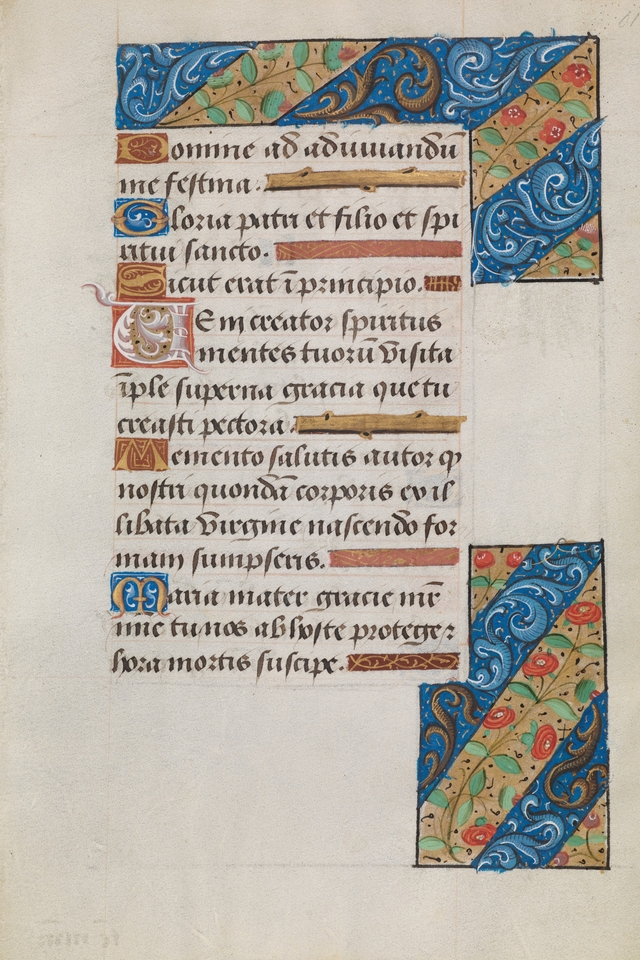 Domine ad adiuuandū
me festina.
Gloria patri et filio et spi
ritui sancto.
Sicut erat ī principio.
VEni creator spiritus
mentes tuorū visita
īple superna gracia que tu
creasti pectora.
Memento salutis autor ꝙ
nostri quondā corporis ex il
libata virgine nascendo for
mam sumpseris.
Maria mater gracie mr̄
mie tu nos ab hoste protege ꝛ
hora mortis suscipe.